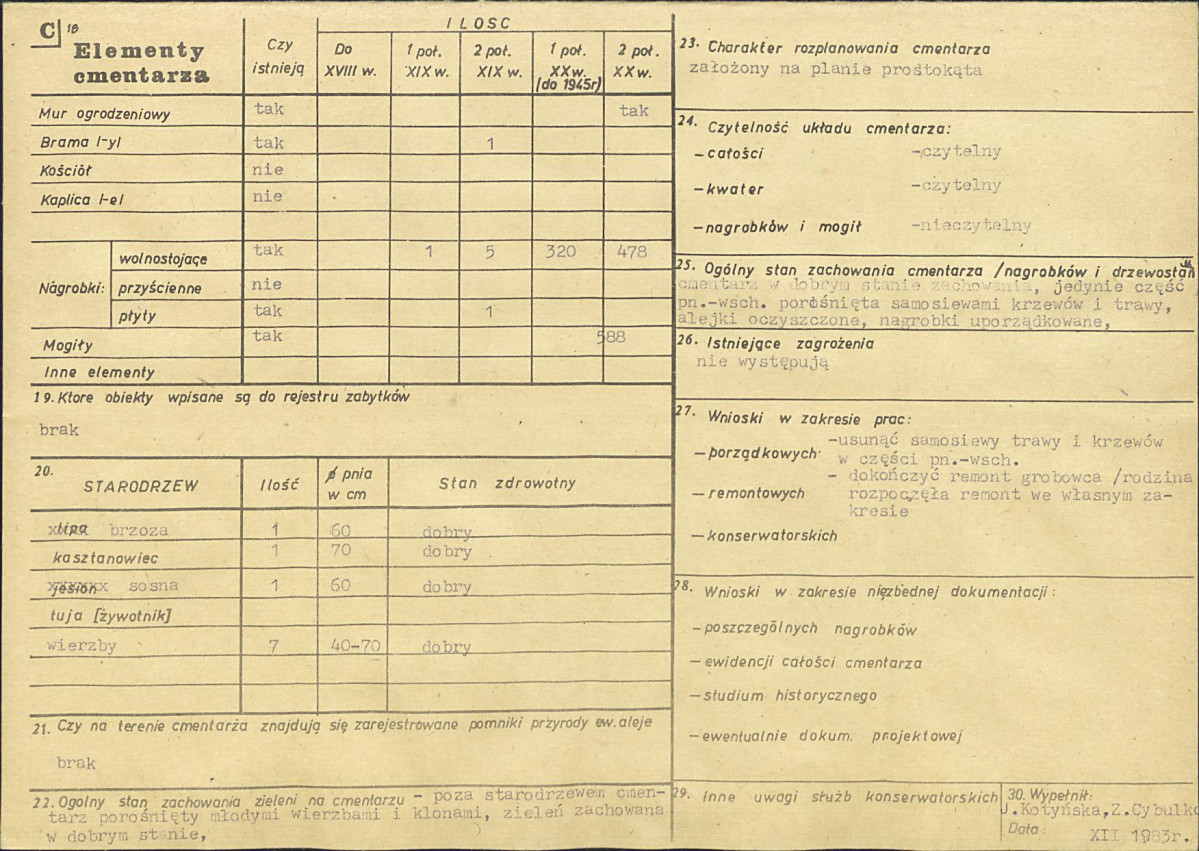 C 18
Elementy
cmentarza
Czy
istnieją
ILOSC
Do
XVIII w.
1 poł.
XIX w.
2 poł.
XIX w.
1 poł.
XX w.
(do 1945r)
2 poł.
XX w.
Mur ogrodzeniowy tak tak
Brama I-yI tak 1
Kościół nie
Kaplica I-eI nie
Nagrobki:
wolnostojące tak 1 5 320 478
przyścienne nie
płyty tak 1
Mogiły tak 588
Inne elementy
19. Ktore obiekty wpisane są do rejestru zabytków
brak
20.
STARODRZEW
Ilość
ø pnia
w cm
Stan zdrowotny
lipa brzoza 1 60 dobry
kasztanowiec 1 70 dobry
jesion sosna 1 60 dobry
tuja [żywotnik]
wierzby 7 40-70 dobry
21. Czy na terenie cmentarża znajdują się zarejestrowane pomniki przyrody ew. aleje
brak
22. Ogolny stan zachowania zieleni na cmentarzu - poza starodrzewem cmen-
tarz porośnięty młodymi wierzbami i klonami, zieleń zachowana
w dobrym stanie,
23. Charakter rozplanowania cmentarza
założony na planie prostokąta
24. Czytelność układu cmentarza:
- całości -czytelny
- kwater -czytelny
- nagrobków i mogił -nieczytelny
25. Ogólny stan zachowania cmentarza /nagrobków i drzewostan
cmentarz w dobrym stanie zachowania, jedynie część
pn.-wsch. porośnięta samosiewami krzewów i trawy,
alejki oczyszczone, nagrobki uporządkowane,
26. Istniejące zagrożenia
nie występują
27. Wnioski w zakresie prac:
- porządkowych -usunąć samosiewy trawy i krzewów
w części pn.-wsch.
- dokończyć remont grobowca /rodzina
- remontowych rozpoczęła remont we własnym za-
kresie
- konserwatorskich
28. Wnioski w zakresie niezbednej dokumentacji:
- poszczególnych nagrobków
- ewidencji całości cmentarza
- studium historycznego
- ewentualnie dokum. projektowej
29. Inne uwagi służb konserwatorskich
30. Wypełnił:
J.Kotyńska,Z.Cybulko
Data: XII 1983r.